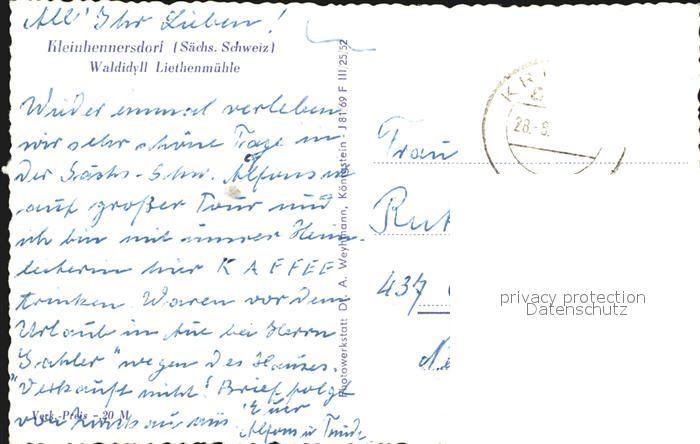 All' Ihr Lieben!
Kleinhennersdorf (Sächs. Schweiz)
Waldidyll Liethenmühle
Wieder einmal verleben
wir sehr schöne Tage in
der Sächs.-Schw. Alfons ist
auf großer Tour und
ich bin mit unsrer Heim-
leiterin hier KAFFEE
trinken. Waren vor dem
Urlaub in Aue bei Herrn
" wegen des Hauses.
"Verkauft nicht! Brief folgt
von aus Eure
Alfons u. Trude
Verk.-Preis -20 M
Photowerkstatt Dr. A. Weyhmann, Königstein · J 81 69 F III 25 52
28.-8.
Frau
437
privacy protection
Datenschutz